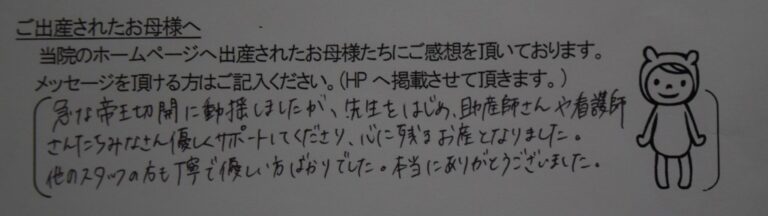 ご出産されたお母様へ
当院のホームページへ出産されたお母様たちにご感想を頂いております。
メッセージを頂ける方はご記入ください。(HPへ掲載させて頂きます。)
急な帝王切開に動揺しましたが、先生をはじめ、助産師さんや看護師
さんたちみなさん優しくサポートしてくださり、心に残るお産となりました。
他のスタッフの方も丁寧で優しい方ばかりでした。本当にありがとうございました。